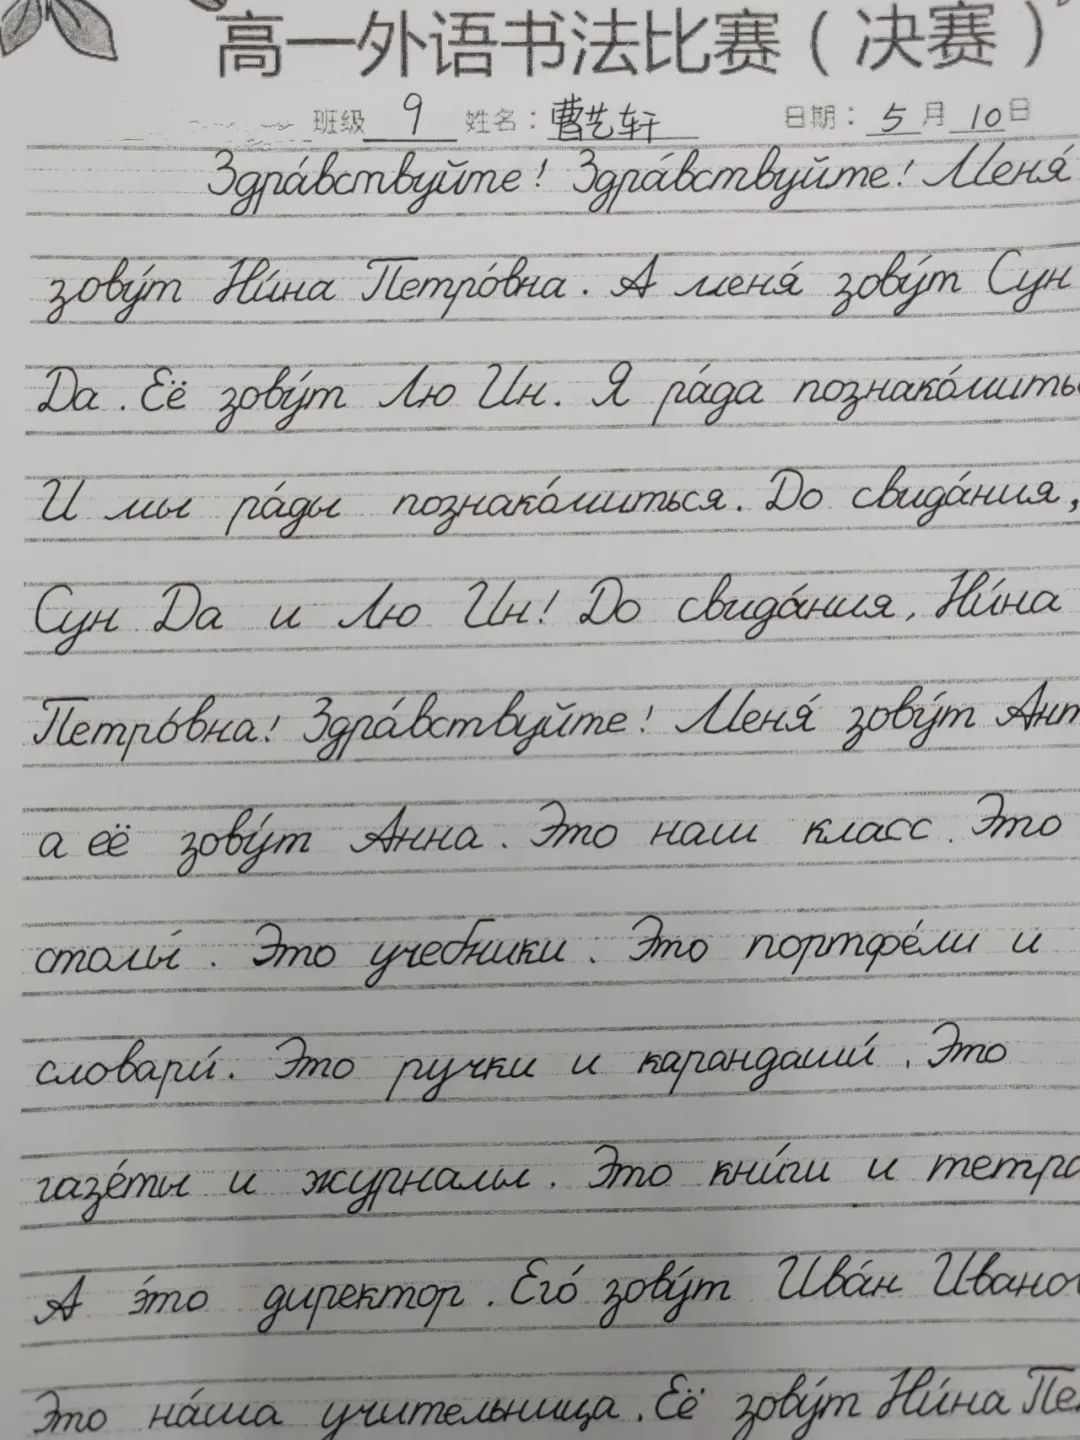 高一外语书法比赛（决赛）
班级 9 姓名：曹艺轩 日期：5月10日
Здра́вствуйте! Здра́вствуйте! Меня́
зову́т Ни́на Петро́вна. А меня́ зову́т Сун
Да. Её зову́т Лю Ин. Я ра́да познако́мить
И мы ра́ды познако́миться. До свида́ния,
Сун Да и Лю Ин! До свида́ния, Ни́на
Петро́вна! Здра́вствуйте! Меня́ зову́т Ант
а её зову́т Анна. Это наш класс. Это
столы́. Это учебники. Это портфе́ли и
словари́. Это ручки и карандаши́. Это
газе́ты и журналы. Это кни́ги и тетра
А э́то директор. Его́ зову́т Ива́н Ивано
Это на́ша учительница. Её зову́т Ни́на Пе